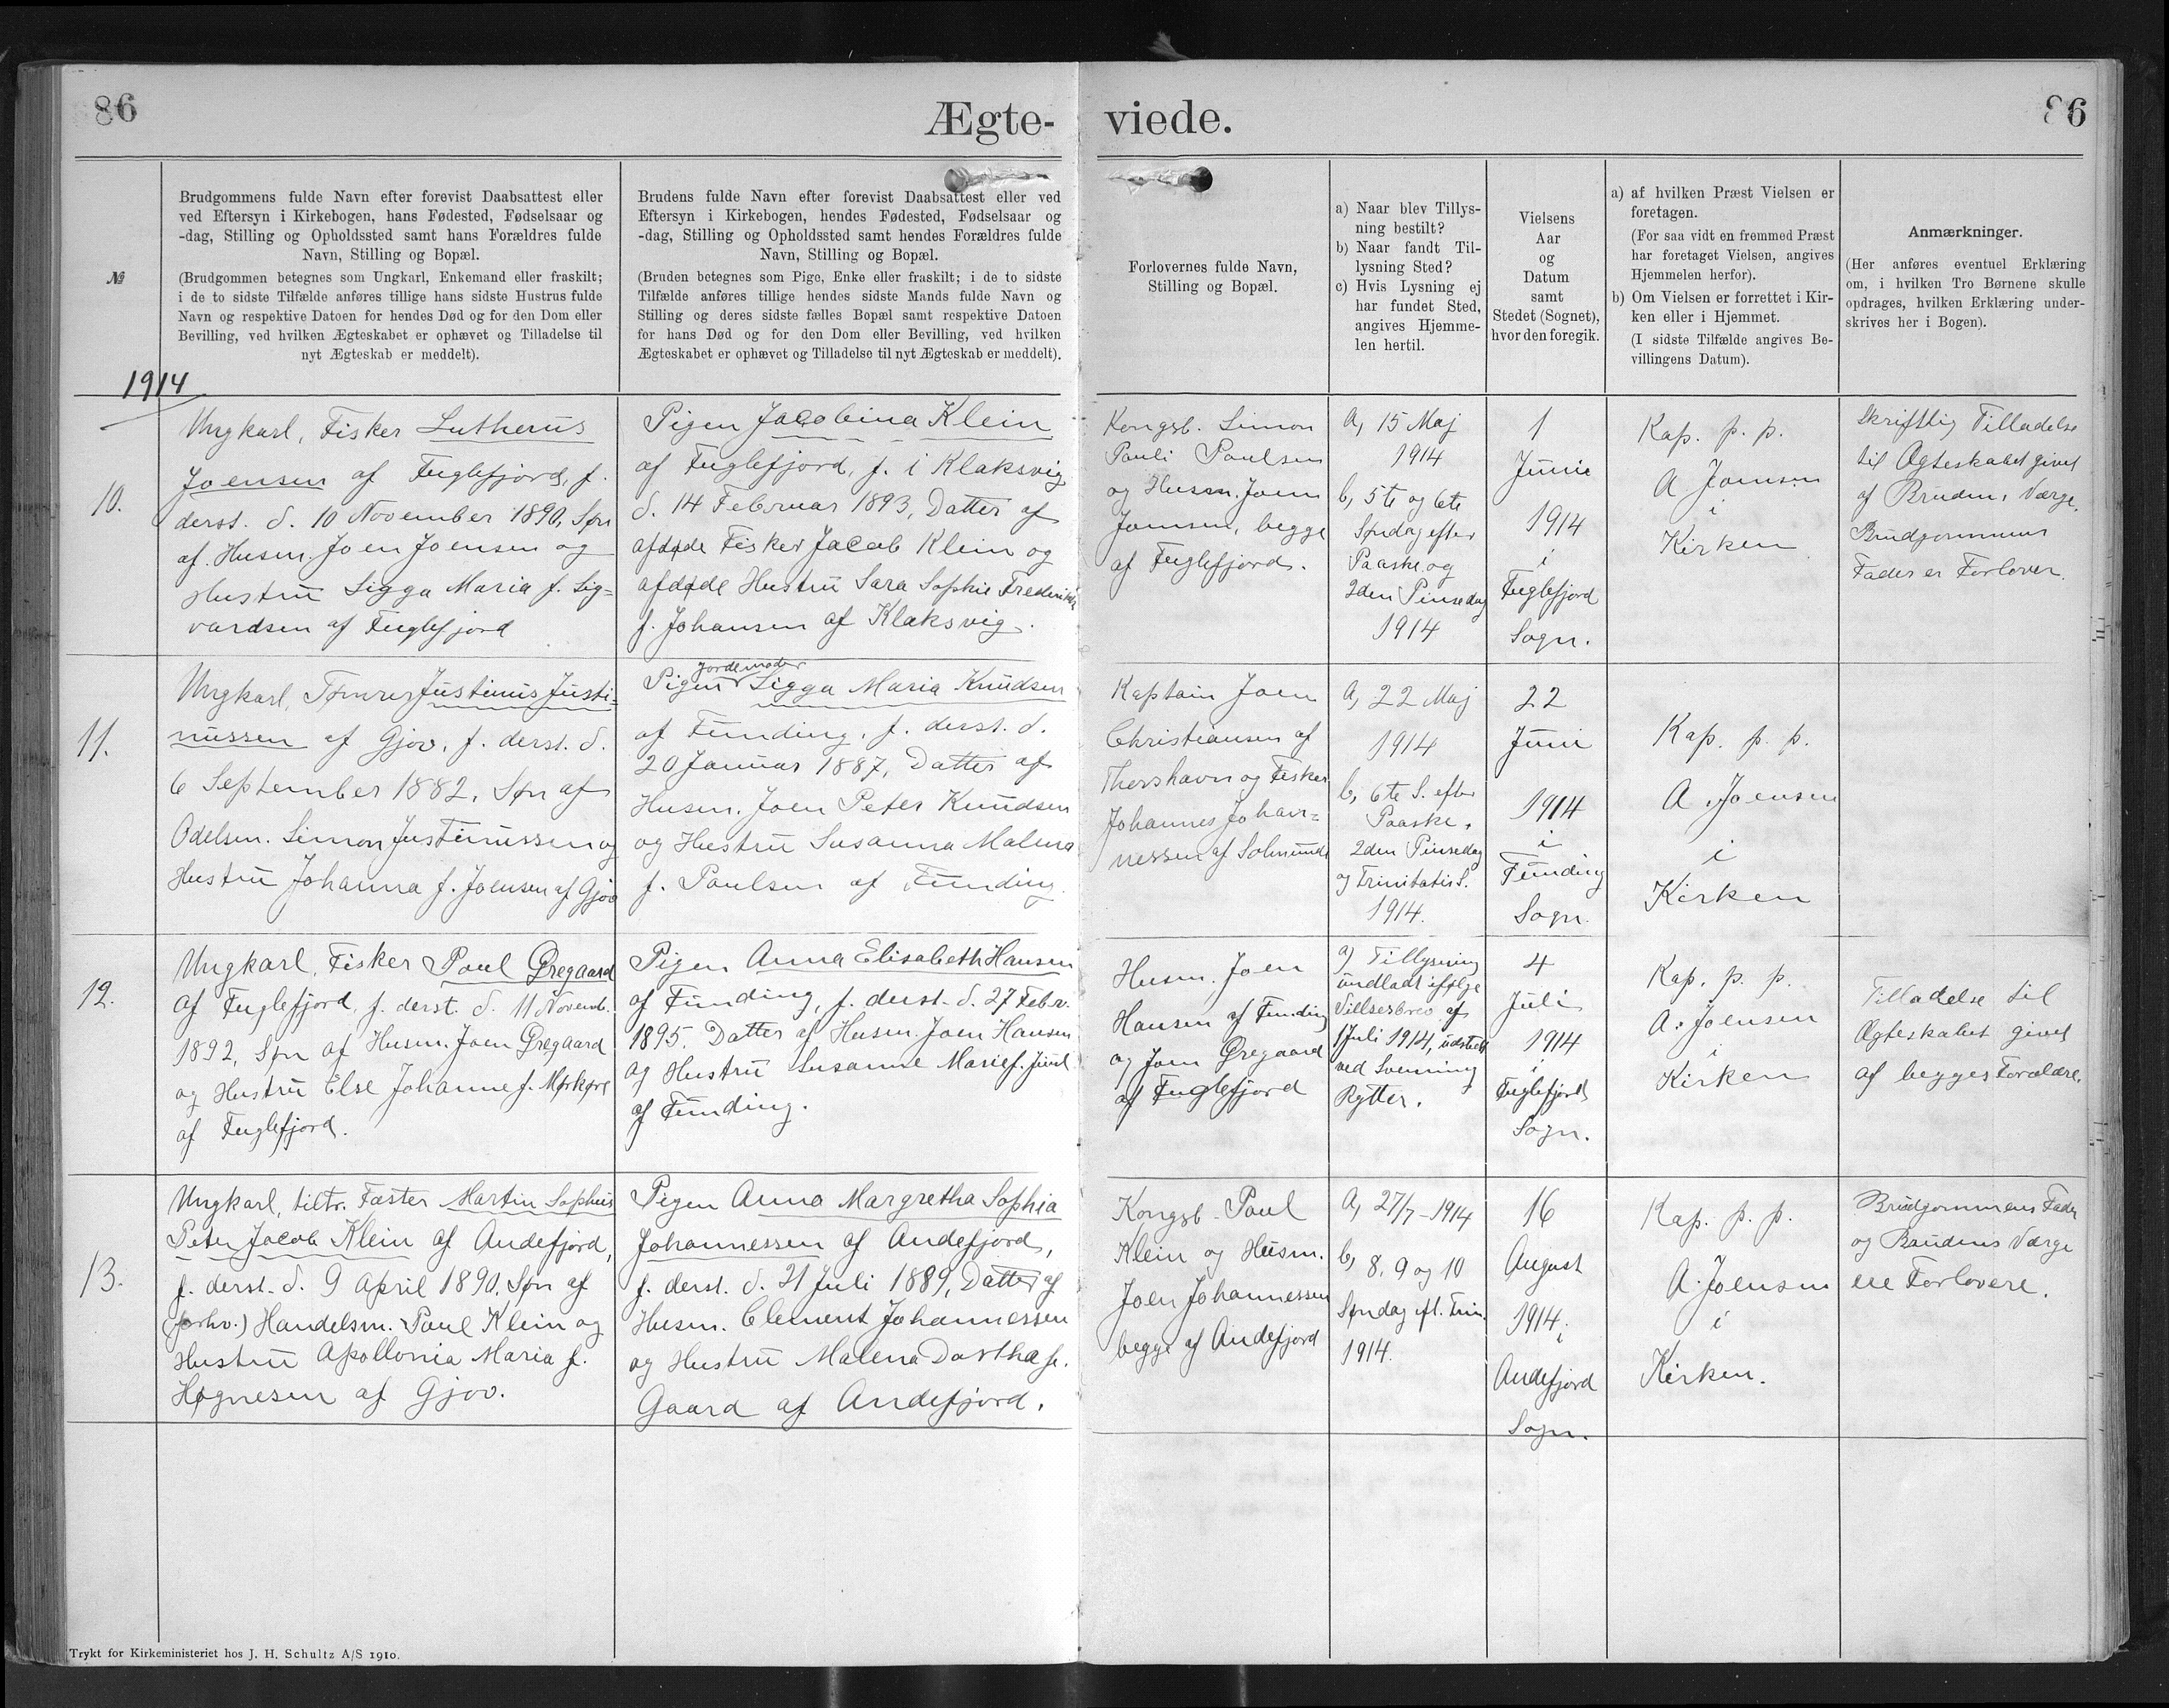 86
Ægte-
viede.
86
№
Brudgommens fulde Navn efter forevist Daabsattest eller
ved Eftersyn i Kirkebogen, hans Fødested, Fødselsaar og
-dag, Stilling og Opholdssted samt hans Forældres fulde
Navn, Stilling og Bopæl.
(Brudgommen betegnes som Ungkarl, Enkemand eller fraskilt;
i de to sidste Tilfælde anføres tillige hans sidste Hustrus fulde
Navn og respektive Datoen for hendes Død og for den Dom eller
Bevilling, ved hvilken Ægteskabet er ophævet og Tilladelse til
nyt Ægteskab er meddelt).
Brudens fulde Navn efter forevist Daabsattest eller ved
Eftersyn i Kirkebogen, hendes Fødested, Fødselsaar og
-dag, Stilling og Opholdssted samt hendes Forældres fulde
Navn, Stilling og Bopæl.
(Bruden betegnes som Pige, Enke eller fraskilt; i de to sidste
Tilfælde anføres tillige hendes sidste Mands fulde Navn og
Stilling og deres sidste fælles Bopæl samt respektive Datoen
for hans Død og for den Dom eller Bevilling, ved hvilken
Ægteskabet er ophævet og Tilladelse til nyt Ægteskab er meddelt).
Forlovernes fulde Navn,
Stilling og Bopæl.
a) Naar blev Tillys-
ning bestilt?
b) Naar fandt Til-
lysning Sted?
c) Hvis Lysning ej
har fundet Sted,
angives Hjemme-
len hertil.
Vielsens
Aar
og
Datum
samt
Stedet (Sognet),
hvor den foregik.
a) af hvilken Præst Vielsen er
foretagen.
(For saa vidt en fremmed Præst
har foretaget Vielsen, angives
Hjemmelen herfor).
b) Om Vielsen er forrettet i Kir-
ken eller i Hjemmet.
(I sidste Tilfælde angives Be-
villingens Datum).
Anmærkninger.
(Her anføres eventuel Erklæring
om, i hvilken Tro Børnene skulle
opdrages, hvilken Erklæring under-
skrives her i Bogen).
1914
10.
Ungkarl, Fisker Lutherus
Joensen af Fuglefjord, f.
derst. d. 10 November 1890, Søn
af Husm. Joen Joensen og
Hustru Sigga Maria f. Sig=
vardsen af Fuglefjord
Pigen Jacobina Klein
af Fuglefjord, f. i Klaksvig
d. 14 Februar 1893, Datter af
afdøde Fisker Jacob Klein og
afdøde Hustru Sara Sophie Frederikke
f. Johansen af Klaksvig.
Kongsb. Simon
Pauli Poulsen
og Husm. Joen
Joensen, begge
af Fuglefjord.
a, 15 Maj
1914
b, 5te og 6te
Søndag efter
Paaske og
2den Pinsedag
1914
1
Juni
1914
i
Fuglefjord
Sogn.
Kap. p. p.
A Joensen
i
Kirken
Skriftlig Tilladelse
til Ægteskabet givet
af Brudens Værge.
Brudgommens
Fader er Forlover.
11.
Ungkarl, Tømrer Justinus Justi=
nussen af Gjov, f. derst. d.
6 September 1882, Søn af
Odelsm. Simon Justinussen og
Hustru Johanna f. Joensen af Gjov
Jordemoder
Pigen Sigga Maria Knudsen
af Funding, f. derst. d.
20 Januar 1887, Datter af
Husm. Joen Peter Knudsen
og Hustru Susanna Malena
f. Poulsen af Funding.
Kaptain Joen
Christiansen af
Thorshavn og Fisker
Johannes Johan=
nessen af Solmunde
a, 22 Maj
1914
b, 6te S. efter
Paaske,
2den Pinsedag
og Trinitatis S.
1914.
22
Juni
1914
i
Funding
Sogn.
Kap. p. p.
A. Joensen
i
Kirken
12.
Ungkarl, Fisker Poul Øregaard
af Fuglefjord, f. derst. d. 11 Novemb.
1892, Søn af Husm. Joen Øregaard
og Hustru Else Johanne f. Mørkøre
af Fuglefjord.
Pigen Anna Elisabeth Hansen
af Funding, f. derst. d. 27 Febr.
1895. Datter af Husm. Joen Hansen
og Hustru Susanne Marie f. Juul
af Funding.
Husm. Joen
Hansen af Funding
og Joen Øregaard
af Fuglefjord
a) Tillysning
undladt ifølge
Vielsesbrev af
1 Juli 1914, udstedt
ved Svenning
Rytter.
4
Juli
1914
i
Fuglefjord
Sogn.
Kap. p. p.
A. Joensen
i
Kirken
Tilladelse til
Ægteskabet givet
af begges Forældre.
13.
Ungkarl, tiltr. Fæster Martin Sophus
Peter Jacob Klein af Andefjord,
f. derst. d. 9 April 1890, Søn af
(forhv.) Handelsm. Poul Klein og
Hustru Apollonia Maria f.
Høgnesen af Gjov.
Pigen Anna Margretha Sophia
Johannessen af Andefjord,
f. derst. d. 21 Juli 1889, Datter af
Husm. Clement Johannessen
og Hustru Malena Dorthea f.
Gaard af Andefjord.
Kongsb. Poul
Klein og Husm.
Joen Johannessen
begge af Andefjord
a, 27/7 - 1914
b, 8, 9 og 10
Søndag eft. Trin.
1914.
16
August
1914
i
Andefjord
Sogn.
Kap. p. p.
A. Joensen
i
Kirken.
Brudgommens Fader
og Brudens Værge
ere Forlovere.
Trykt for Kirkeministeriet hos J. H. Schultz A/S 1910.